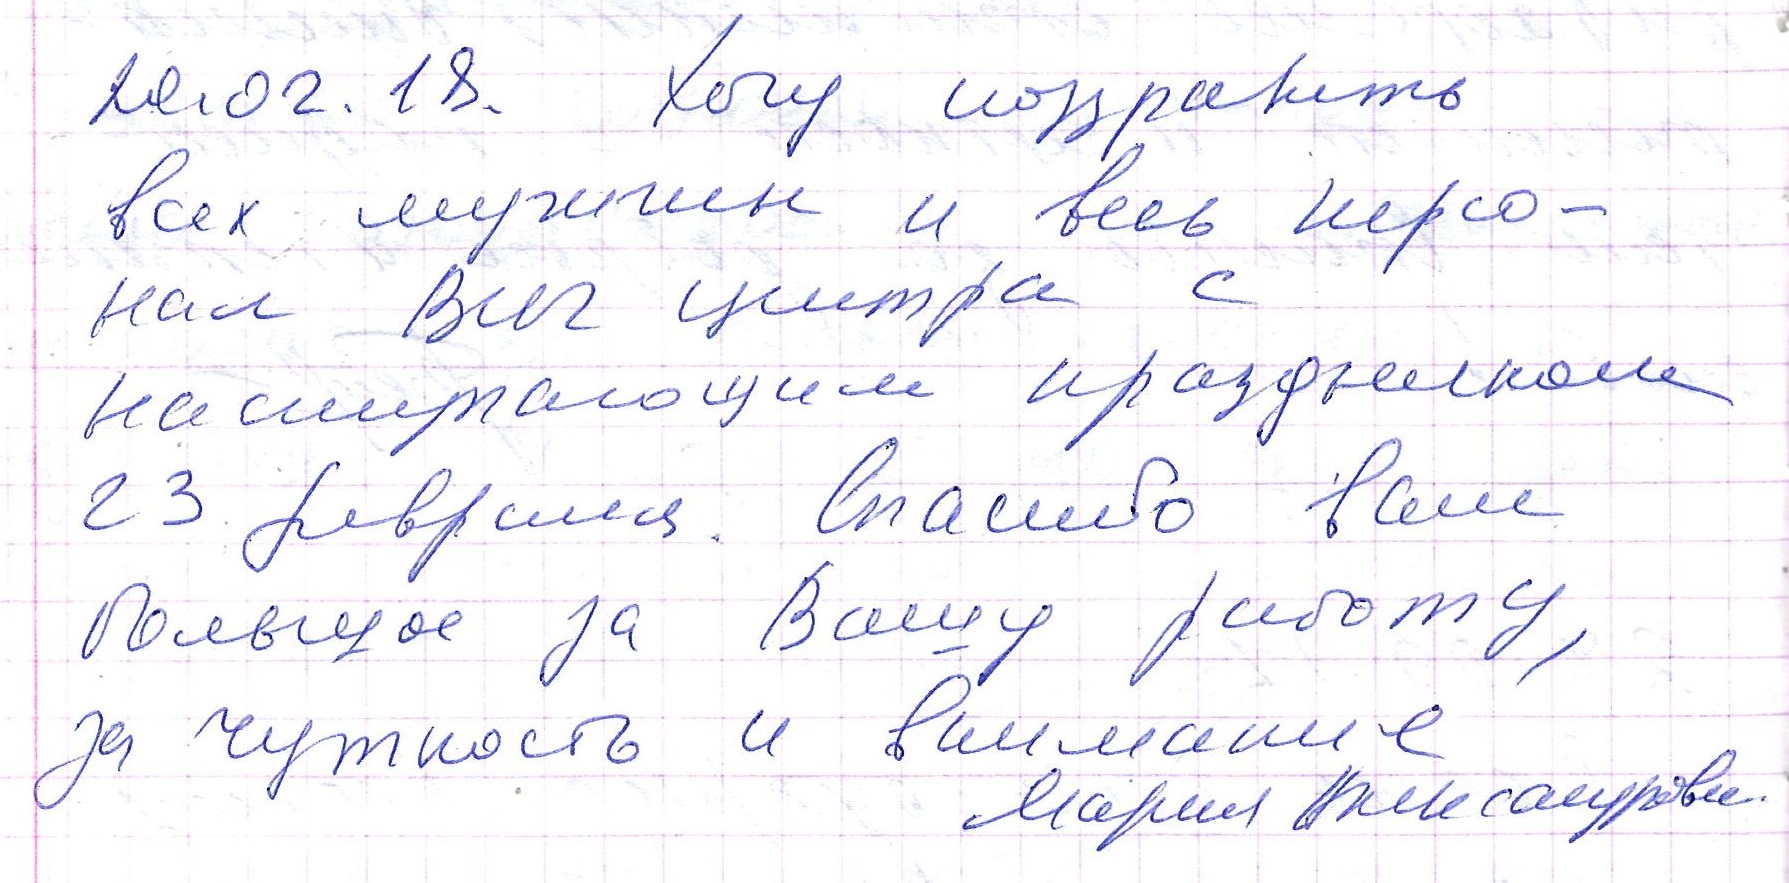 20.02.18. Хочу поздравить
всех мужчин и весь персо-
нал ВИЧ центра с
наступающим праздником
23 февраля. Спасибо вам
большое за Вашу работу,
за чуткость и внимание
Мария Александровн.